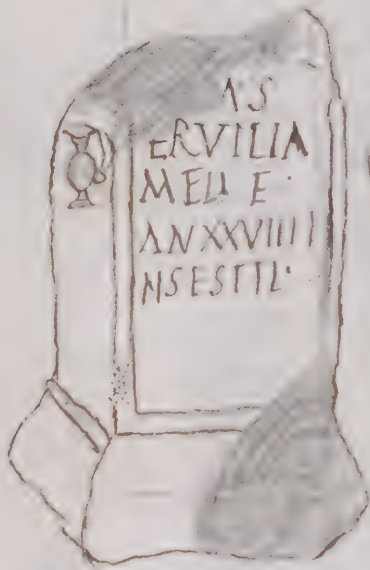 AS
ERVILIA
MELI E·
ANXXVIIII
HSESTTL·